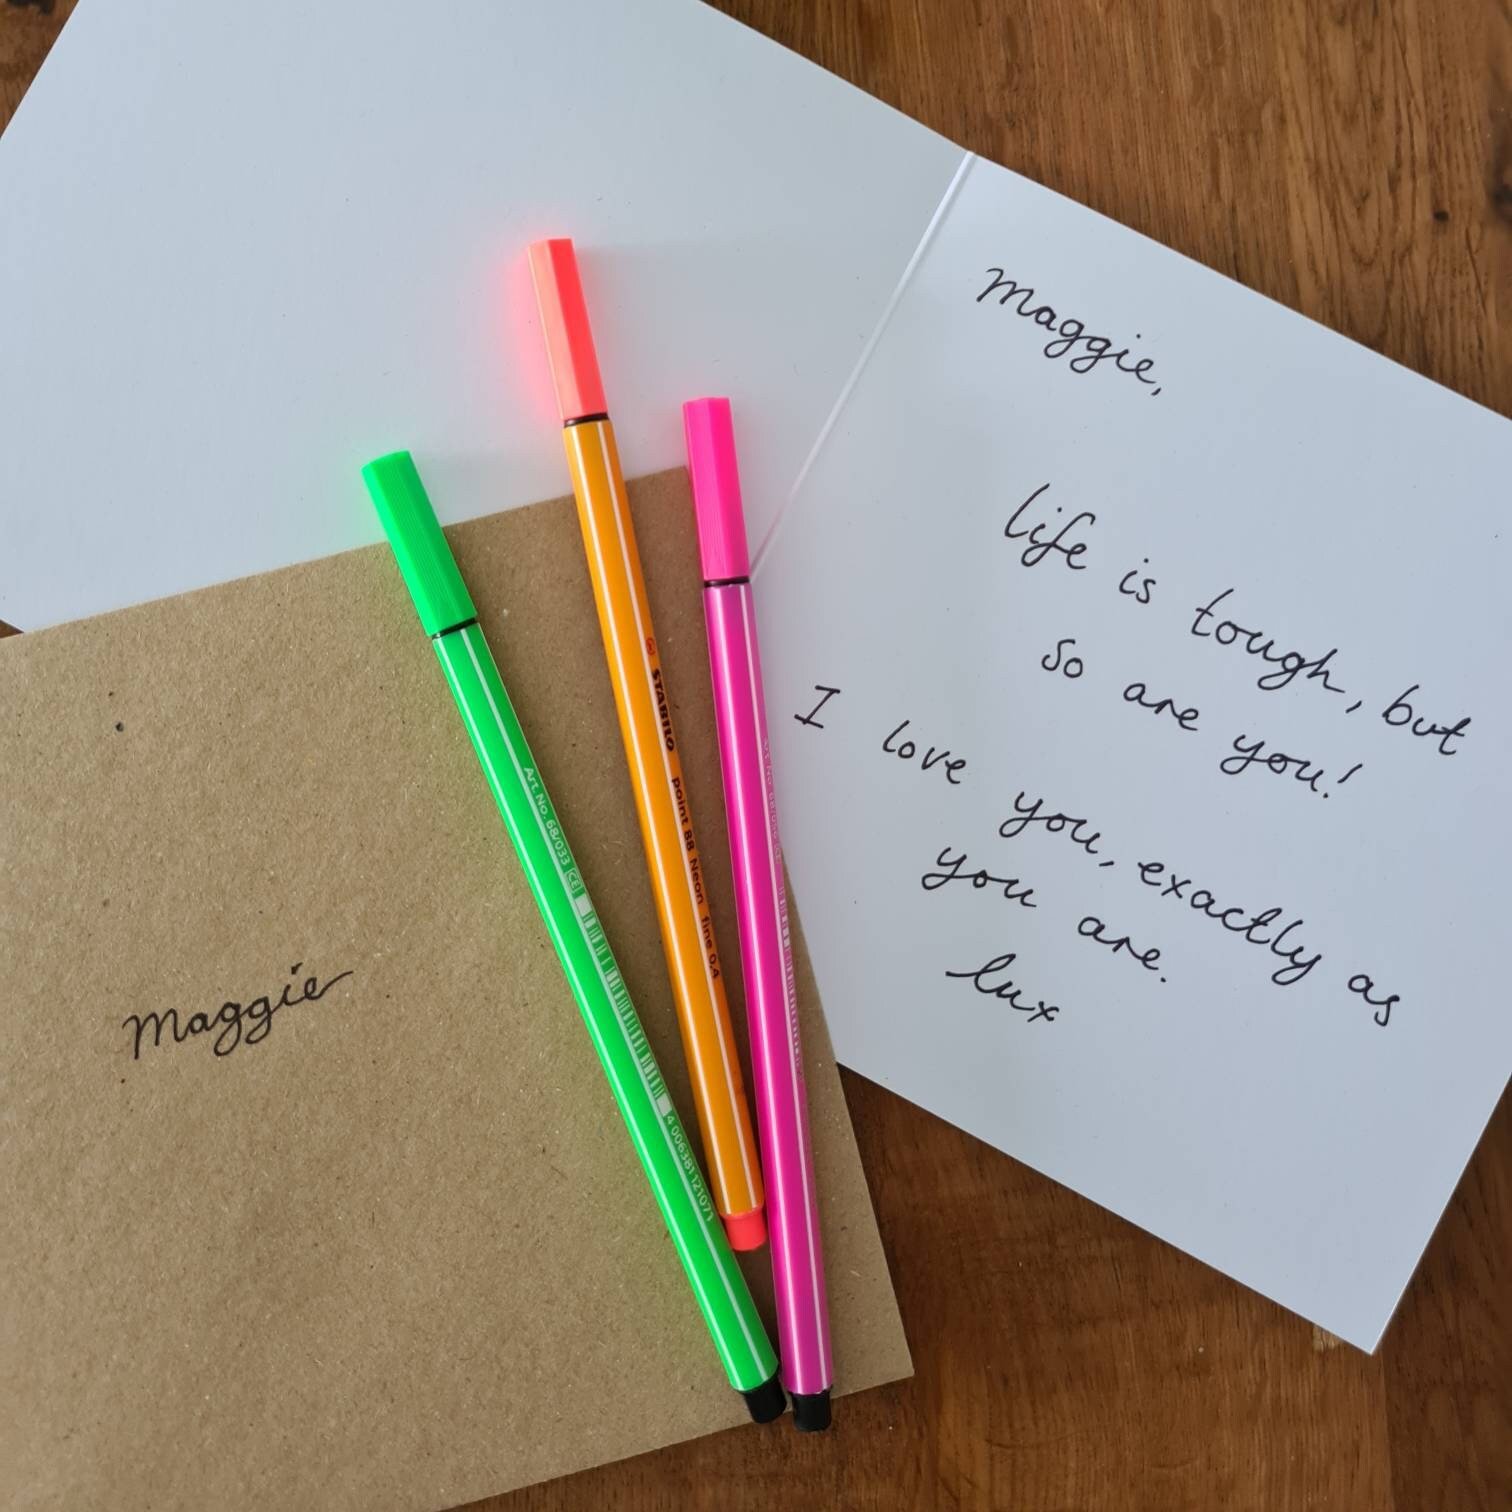 Maggie,
life is tough, but
so are you!
I love you, exactly as
you are.
lux
Maggie
Art. No. 68/033 CE
4 006381 121071
STABILO point 88 Neon fine 0,4